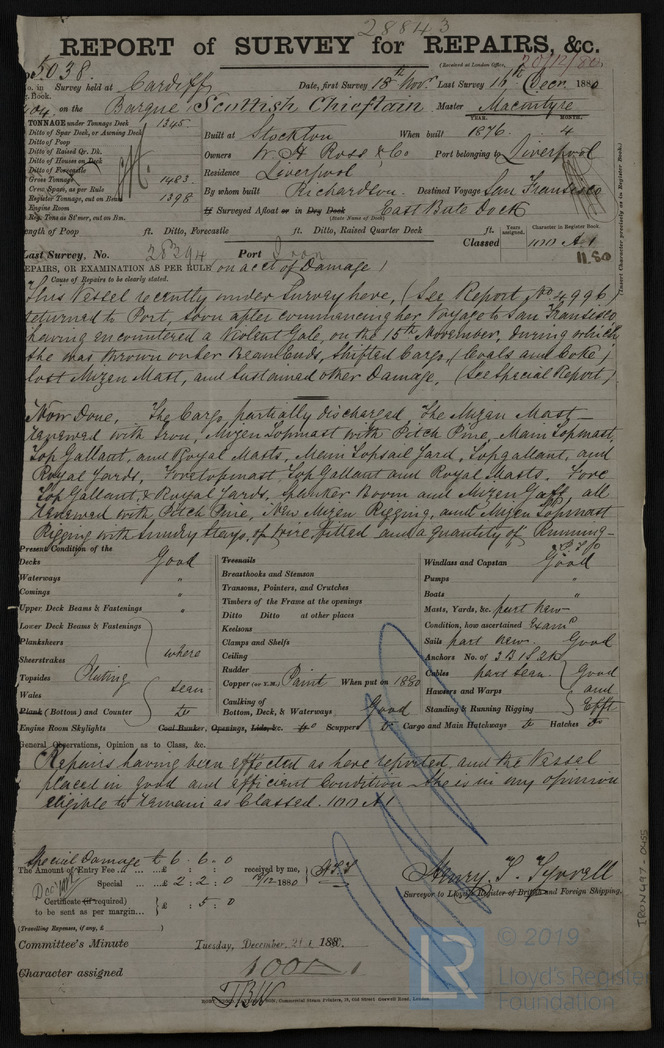 28843
REPORT of SURVEY for REPAIRS, &c.
(Received at London Office, 20/12/80
5038
No. in Survey held at Cardiff Date, first Survey 18th Novr. Last Survey 16th Decr. 1880
on the Barque Scottish Chieftain Master Macintyre
TONNAGE under Tonnage Deck 1345
Ditto of Spar Deck, or Awning Deck
Ditto of Poop
Ditto of Raised Qr. Dk.
Ditto of Houses on Deck
Ditto of Forecastle
Gross Tonnage 1483
Crew Space, as per Rule
Register Tonnage, cut on Beam 1398
Engine Room
Reg. Tons as St'mer, cut on Bm.
Built at Stockton When built YEAR. 1876 MONTH. 4
Owners W H Ross & Co Port belonging to Liverpool
Residence Liverpool
By whom built Richardson Destined Voyage San Francisco
If Surveyed Afloat or in Dry Dock East Bute Dock
(State Name of Dock)
Length of Poop ft. Ditto, Forecastle ft. Ditto, Raised Quarter Deck ft.
Years assigned. Character in Register Book
Classed 100 A1
11.80
(Insert Character precisely as in Register Book.)
Last Survey, No. 28394 Port Iron
REPAIRS, OR EXAMINATION AS PER RULE (on acct of Damage)
Cause of Repairs to be clearly stated.
This Vessel recently under Survey here, (See Report No 4996)
returned to Port, soon after commencing her Voyage to San Fransisco
having encountered a Violent Gale, on the 15th November, during which
she was thrown on her Beam Ends, shifted Cargo (Coals and Coke)
lost Mizen Mast, and sustained other Damage. (See Special Report)
Now Done, The Cargo partially discharged The Mizen Mast
renewed with Iron, Mizen Topmast with Pitch Pine, Main Topmast,
Top Gallant, and Royal Masts, Main Topsail Yard, Topgallant, and
Royal Yards, Foretopmast, Top Gallant and Royal Masts. Fore
Top Gallant, & Royal Yards, Spanker Boom and Mizen Gaff, all
renewed with Pitch Pine, New Mizen Rigging, and Mizen Topmast
Rigging with sundry stays, of wire fitted and a quantity of Running
P.T.O
Present Condition of the
Decks Good
Waterways "
Comings "
Upper Deck Beams & Fastenings "
Lower Deck Beams & Fastenings
Planksheers
Sheerstrakes where
Topsides Plating
Wales seen
Plank (Bottom) and Counter do
Engine Room Skylights
Treenails
Breasthooks and Stemson
Transoms, Pointers, and Crutches
Timbers of the Frame at the openings
Ditto Ditto at other places
Keelsons
Clamps and Shelfs
Ceiling
Rudder
Copper (or Y.M.) Paint When put on 1880
Caulking of
Bottom, Deck, & Waterways Good
Coal Bunker, Openings, Lids, &c. do Scuppers do Cargo and Main Hatchways do Hatches do
Windlass and Capstan Good
Pumps "
Boats "
Masts, Yards, &c. part new
Condition, how ascertained Examd
Sails part new. Good
Anchors No. of 3B 1S 2K
Cables part seen. Good
Hawsers and Warps and
Standing & Running Rigging Efft
General Observations, Opinion as to Class, &c.
Repairs having been effected as here reported, and the Vessel
placed in good and efficient Condition she is in my opinion
eligible to remain as Classed. 100 A1
Special Damage £ 6 : 6 : 0
The Amount of Entry Fee .. £ : : received by me,
Special .. £ 2 : 2 : 0 /12/1880
Certificate (if required) £ : 5 : 0
to be sent as per margin...
(Travelling Expenses, if any, £ )
Henry T. Tyrrell
Surveyor to Lloyd's Register of British and Foreign Shipping.
Committee's Minute Tuesday, December 21st 1880.
Character assigned 100A1
TBW
IRON497-0455
© 2019
LR
Lloyd's Register
Foundation